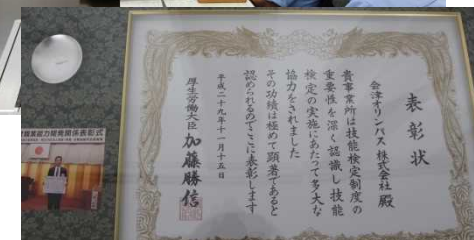 表彰状
会津オリンパス株式会社殿
貴事業所は技能検定制度の
重要性を深く認識し技能
検定の実施にあたって多大な
協力をされました
その功績は極めて顕著であると
認められるのでここに表彰します
平成二十九年十一月十五日
厚生労働大臣 加藤勝信
職業能力開発関係表彰式